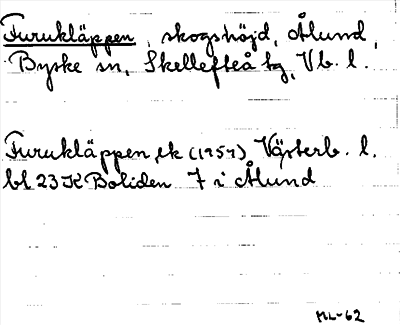 Furukläppen, skogshöjd, Ålund,
Byske sn, Skellefteå tg, Vb. l.
Furukläppen, ek (1959) Västerb. l.
bl 23 K Boliden 7 i Ålund
ML-62